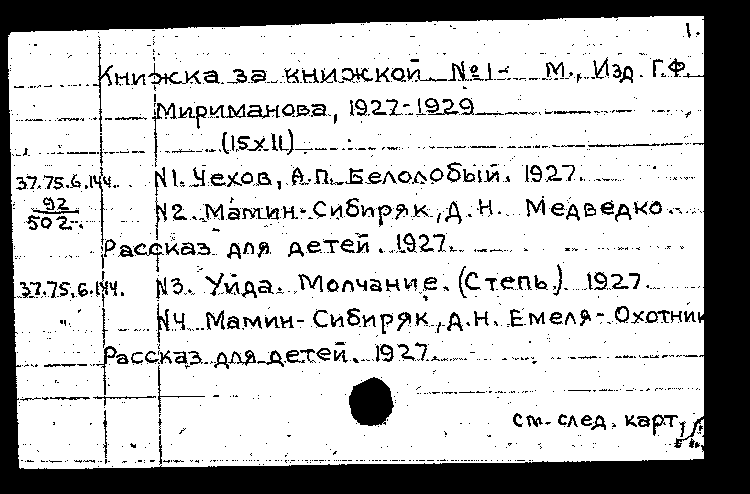 1.
Книжка за книжкой №1- М., Изд. Г.Ф.
Мириманова, 1927-1929
(15x11)
37.75.6.144. N1. Чехов, А.П. Белолобый. 1927.
92
502. N2. Мамин-Сибиряк, Д.Н. Медведко.
Рассказ для детей. 1927.
37.75.6.144. N3. Уйда. Молчание. (Степь.) 1927.
" N4 Мамин-Сибиряк, Д.Н. Емеля-Охотник
Рассказ для детей. 1927.
см. след. карт.